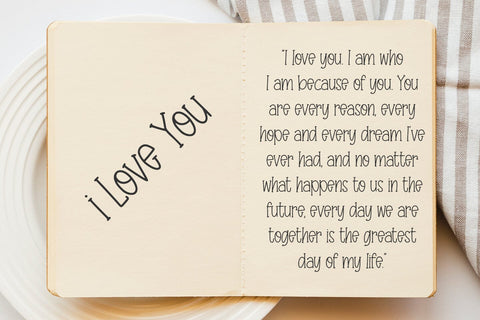 i Love You
"I love you. I am who
I am because of you. You
are every reason, every
hope and every dream I've
ever had, and no matter
what happens to us in the
future, every day we are
together is the greatest
day of my life."